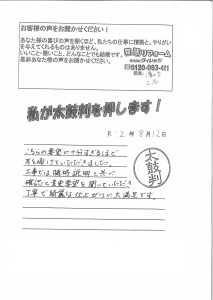 お客様の声をお聞かせください！
あなた様の喜びの声を聞くほど、私たちの仕事に情熱と、やりがい
を与えてくれるものはありません。
いいこと・悪いこと、どんなことでも結構です。
是非あなた様の声をお聞かせください。
リフォーム
0120-063-411
私が太鼓判を押します！
R 2年8月12日
こちらの要望に十分すぎるほど
耳を傾けていただきました。
工事では随時説明と共に
確認と変更希望を聞いていただき
丁寧で綺麗な仕上がりに大満足です。
太鼓判